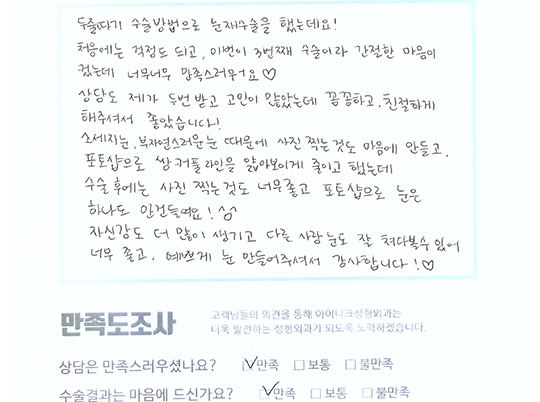 두줄따기 수술방법으로 눈재수술을 했는데요!
처음에는 걱정도 되고, 이번이 3번째 수술이라 간절한 마음이
컸는데 너무너무 만족스러워요♡
상담도 제가 두번 받고 고민이 많았는데 꼼꼼하고, 친절하게
해주셔서 좋았습니다!
소세지눈, 부자연스러운눈 때문에 사진 찍는것도 마음에 안들고,
포토샵으로 쌍커풀라인을 얇아보이게 줄이고 했는데
수술후에는 사진 찍는것도 너무좋고 포토샵으로 눈은
하나도 안건들여요!
자신감도 더 많이 생기고 다른 사람 눈도 잘 쳐다볼수 있어
너무 좋고, 예쁘게 눈 만들어주셔서 감사합니다!♡
만족도조사
고객님들의 의견을 통해 아이니크성형외과는
더욱 발전하는 성형외과가 되도록 노력하겠습니다.
상담은 만족스러우셨나요? ☑만족 □보통 □불만족
수술결과는 마음에 드신가요? ☑만족 □보통 □불만족